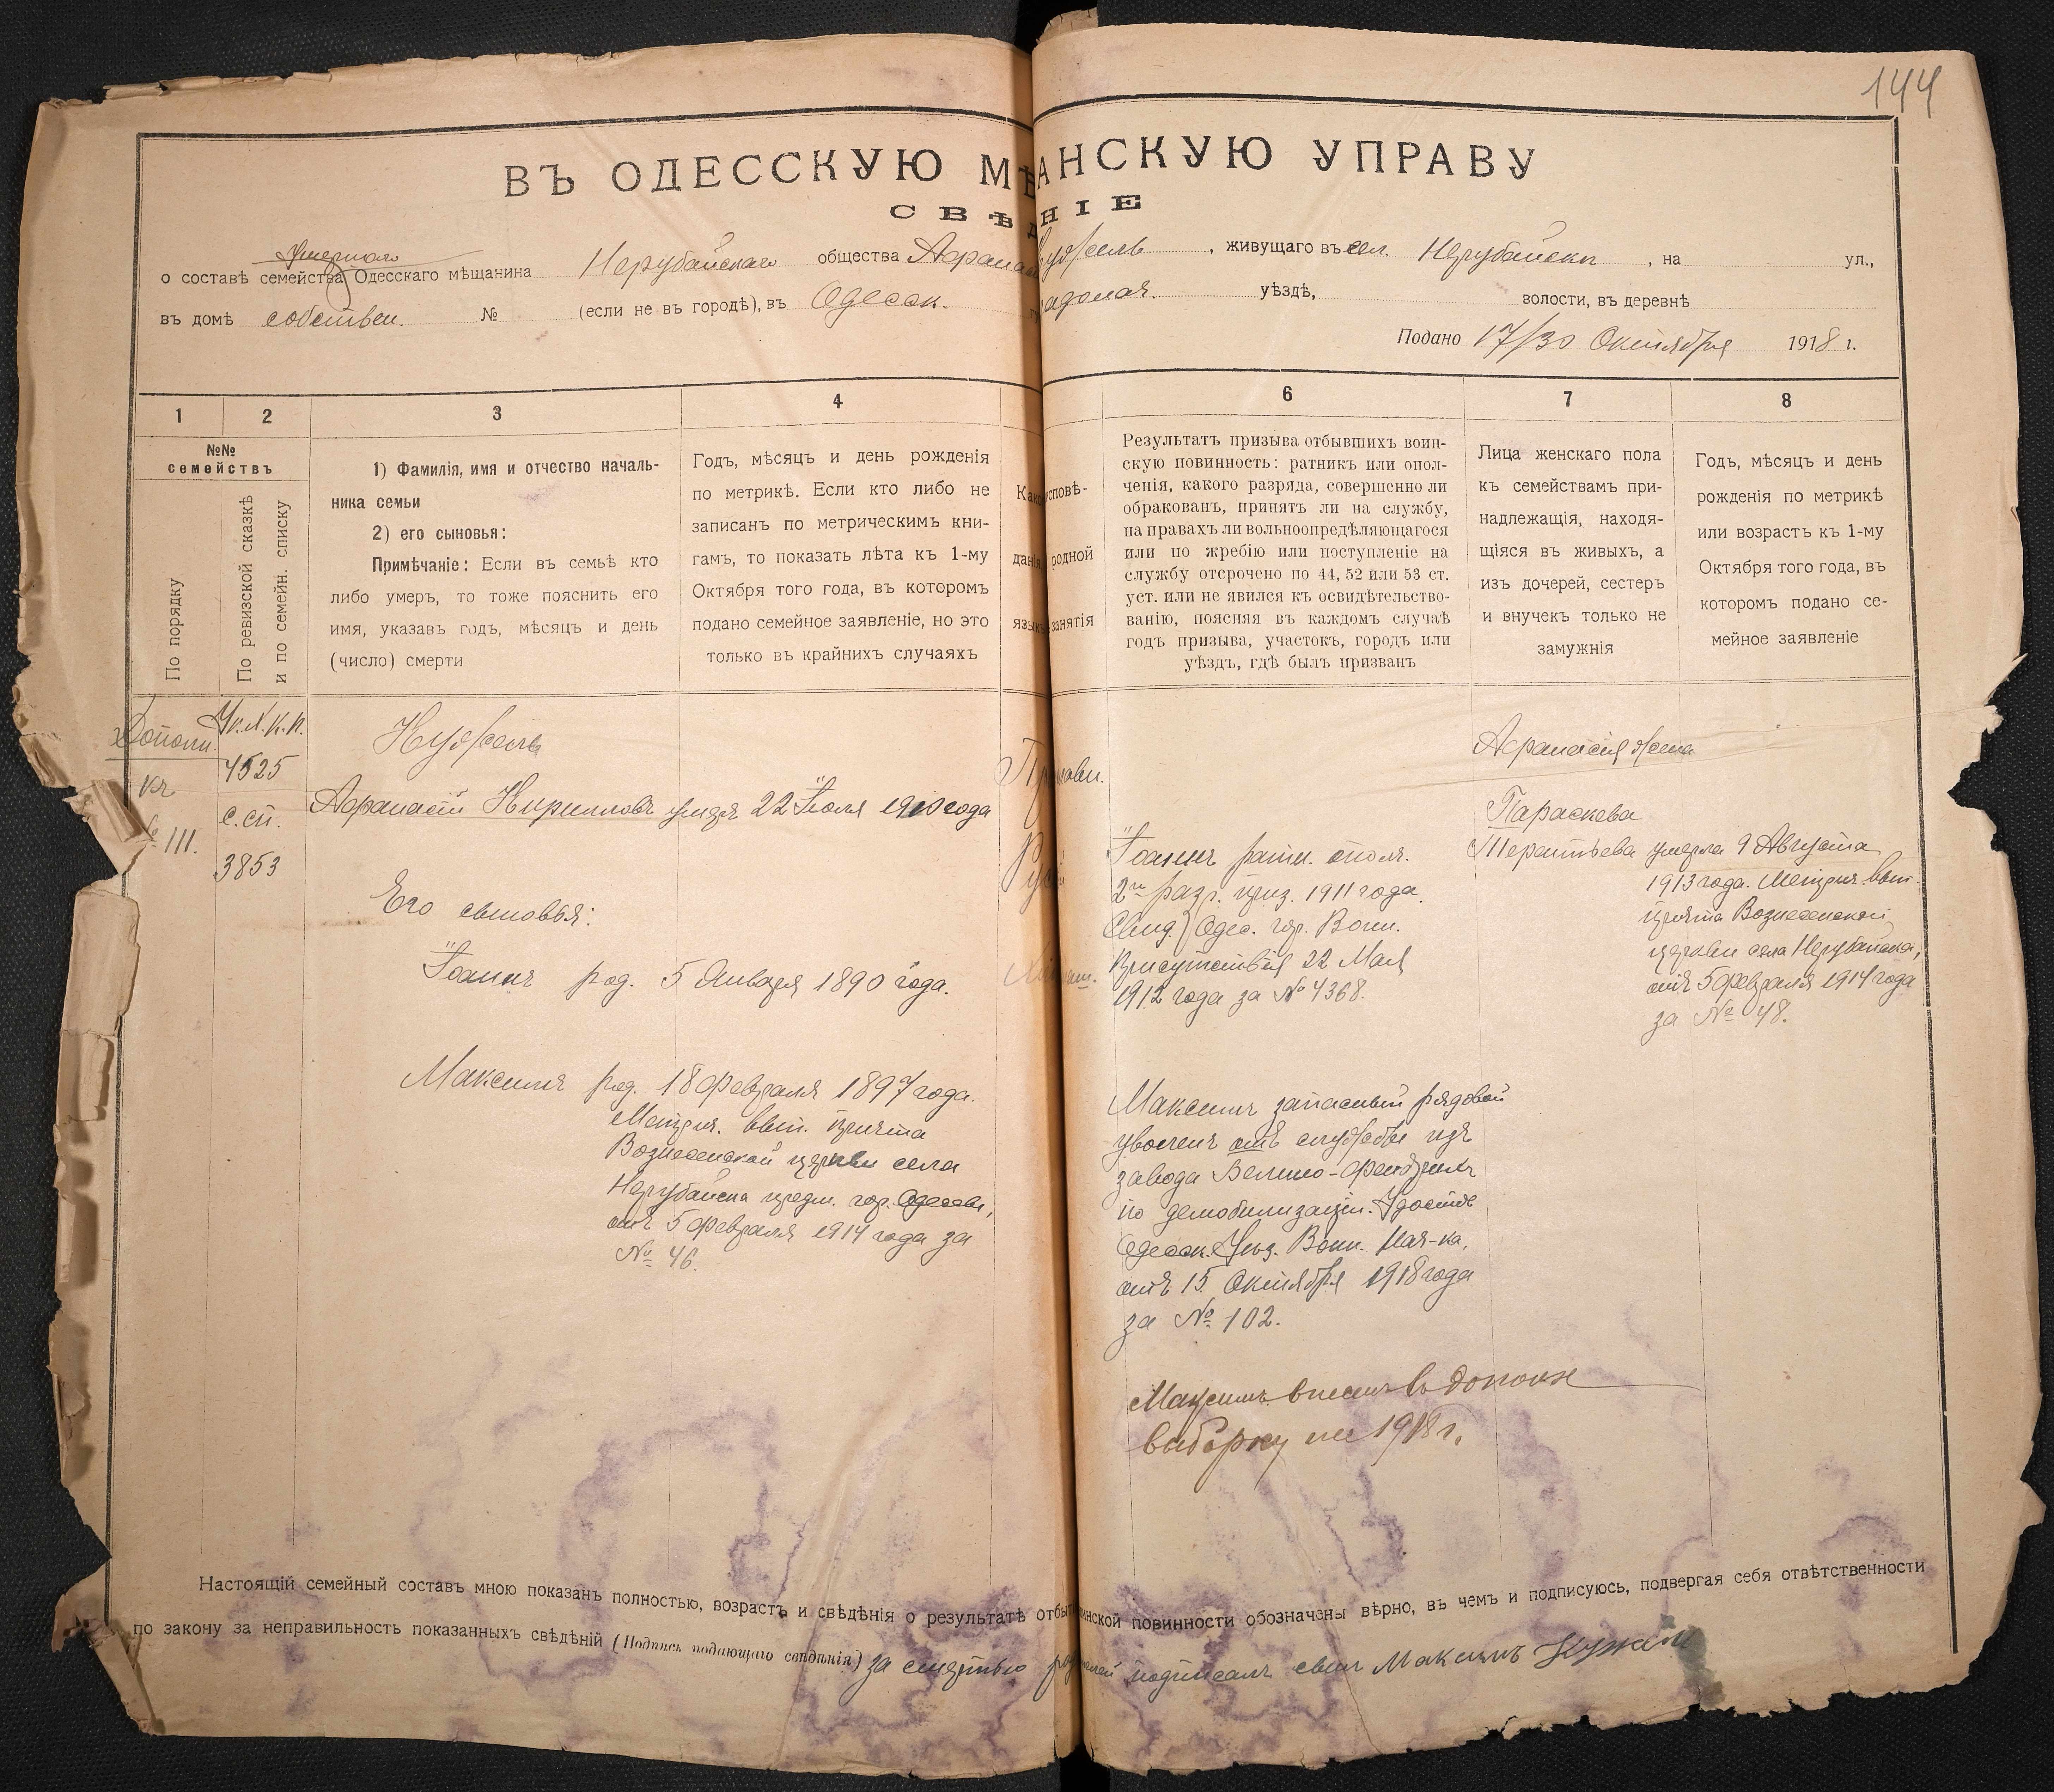 144
ВЪ ОДЕССКУЮ МѢ АНСКУЮ УПРАВУ
СВѢД НІЕ
умершаго
о составѣ семейства Одесскаго мѣщанина Нерубайскаго общества Афанас Кужель, живущаго въ сел. Нерубайски, на ул.,
въ домѣ собствен. № (если не въ городѣ), въ Одесск. градонач. уѣздѣ, волости, въ деревнѣ
Подано 17/30 Октября 1918 г.
1 2 3 4 6 7 8
№№ семействъ
По порядку
По ревизской сказкѣ и по семейн. списку
1) Фамилія, имя и отчество началь-
ника семьи
2) его сыновья:
Примѣчаніе: Если въ семьѣ кто
либо умеръ, то тоже пояснить его
имя, указавъ годъ, мѣсяцъ и день
(число) смерти
Годъ, мѣсяцъ и день рожденія
по метрикѣ. Если кто либо не
записанъ по метрическимъ кни-
гамъ, то показать лѣта къ 1-му
Октября того года, въ которомъ
подано семейное заявленіе, но это
только въ крайнихъ случаяхъ
Как исповѣ-
данія родной
языкъ занятія
Результатъ призыва отбывшихъ воин-
скую повинность: ратникъ или опол-
ченія, какого разряда, совершенно ли
обракованъ, принятъ ли на службу,
на правахъ ли вольноопредѣляющагося
или по жребію или поступленіе на
службу отсрочено по 44, 52 или 53 ст.
уст. или не явился къ освидѣтельство-
ванію, поясняя въ каждомъ случаѣ
годъ призыва, участокъ, городъ или
уѣздъ, гдѣ былъ призванъ
Лица женскаго пола
къ семействамъ при-
надлежащія, находя-
щіяся въ живыхъ, а
изъ дочерей, сестеръ
и внучекъ только не
замужнія
Годъ, мѣсяцъ и день
рожденія по метрикѣ
или возрастъ къ 1-му
Октября того года, въ
которомъ подано се-
мейное заявленіе
Дополн.
къ
№ 111.
4525
с.сп.
3853
Кужель
Афанасій Кирилловъ умеръ 22 Іюля 1910 года
Его сыновья:
Іоаннъ род. 5 Января 1890 года.
Максимъ род. 18 Февраля 1897 года.
Метрич. вып. причта
Вознесенской церкви села
Нерубайска предм. гор. Одессы,
отъ 5 Февраля 1914 года за
№ 46.
Правосл.
Рус
Іоаннъ ратн. ополч.
2го разр. приз. 1911 года.
Свид. Одес. гор. Воин.
Присутствія 22 Мая
1912 года за № 4368.
Максимъ запасный рядовой
уволенъ отъ службы изъ
завода
по демобилизаціи. Удостов
Одесск. Уѣз. Воин. Нач-ка,
отъ 15 Октября 1918 года
за № 102.
Максимъ внесенъ въ дополн
выборку на 1918 г.
Афанасія жена
Параскева
Терентьева умерла 9 Августа
1913 года. Метрич. вып.
причта Вознесенской
церкви села Нерубайска,
отъ 5 Февраля 1914 года
за № 48.
Настоящій семейный составъ мною показанъ полностью, возрастъ и свѣдѣнія о результатѣ отбыт инской повинности обозначены вѣрно, въ чемъ и подписуюсь, подвергая себя отвѣтственности
по закону за неправильность показанныхъ свѣдѣній (Подпись подающаго свѣдѣнія) за смертью родителей подписалъ сынъ Максимъ Кужель